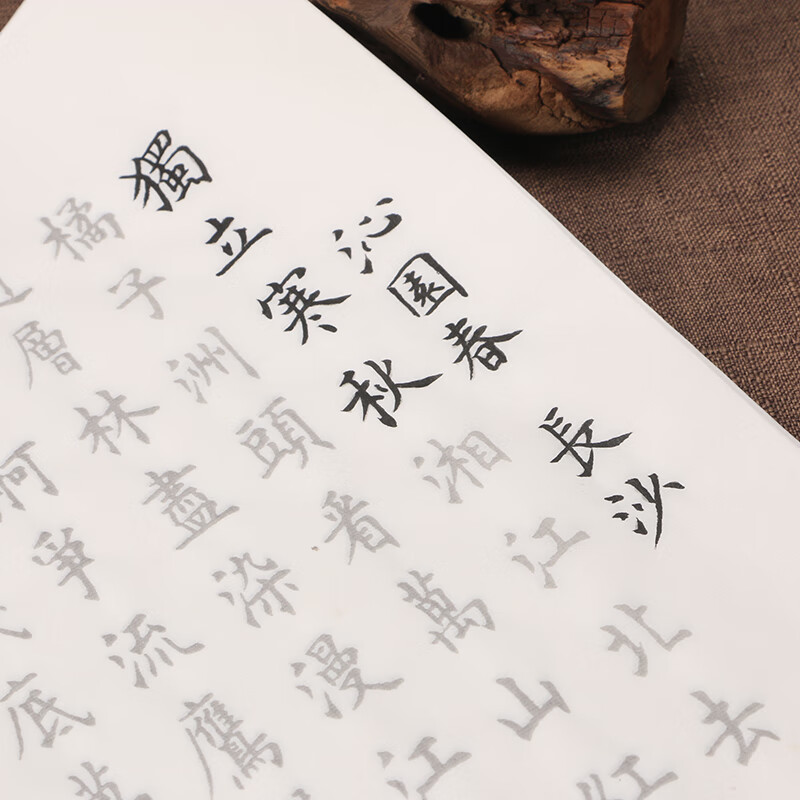 沁園春 長沙
獨立寒秋湘江北去
橘子洲頭看萬山紅
層林盡染漫江
舸爭流鷹
底